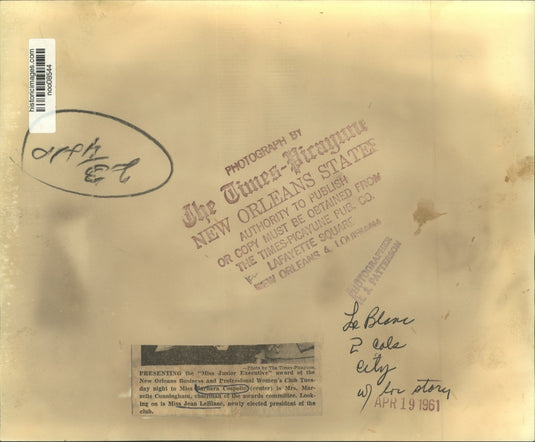 historicimages.com
noo08544
PHOTOGRAPH BY
The Times-Picayune
NEW ORLEANS STATES
AUTHORITY TO PUBLISH
OR COPY MUST BE OBTAINED FROM
THE TIMES-PICAYUNE PUB. CO.
LAFAYETTE SQUARE
NEW ORLEANS &, LOUISIANA
PHOTOGRAPHER
PATTERSON
Le Blanc
2 cols
City
w/ story
APR 19 1961
—Photo by The Times-Picayune.
PRESENTING the "Miss Junior Executive" award of the
New Orleans Business and Professional Women's Club Tues-
day night to Miss Barbara (center) is Mrs. Mar-
Cunningham, chairman of the awards committee. Look-
ing on is Miss Jean LeBlanc, newly elected president of the
club.